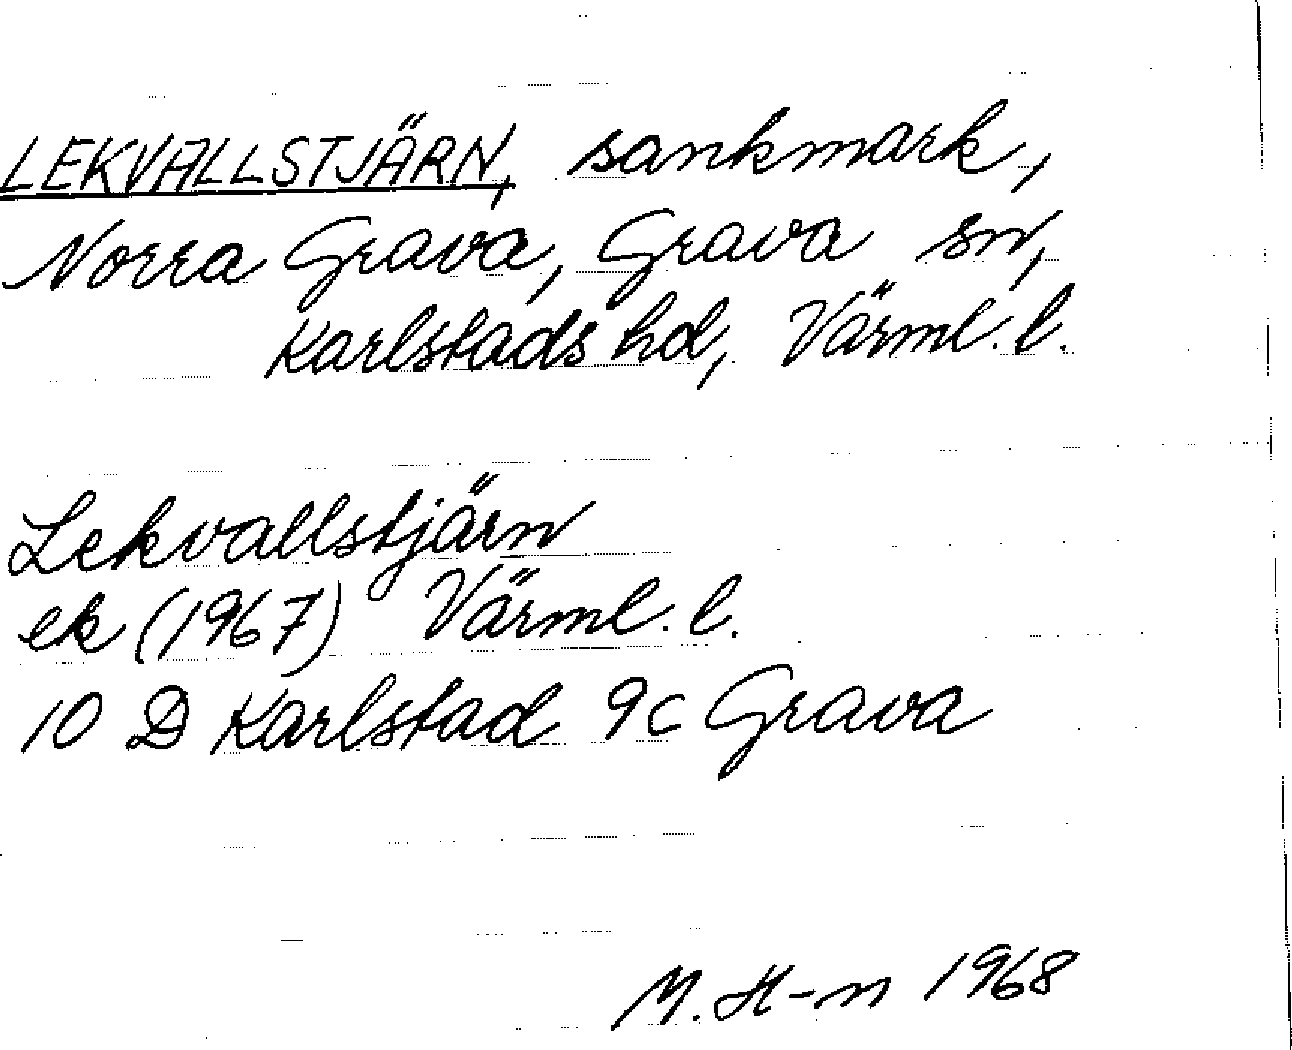 LEKVALLSTJÄRN, sankmark,
Norra Grava, Grava sn,
Karlstads hd, Värml. l.
Lekvallstjärn
ek (1967) Värml. l.
10 D Karlstad 9c Grava
M. H-n 1968